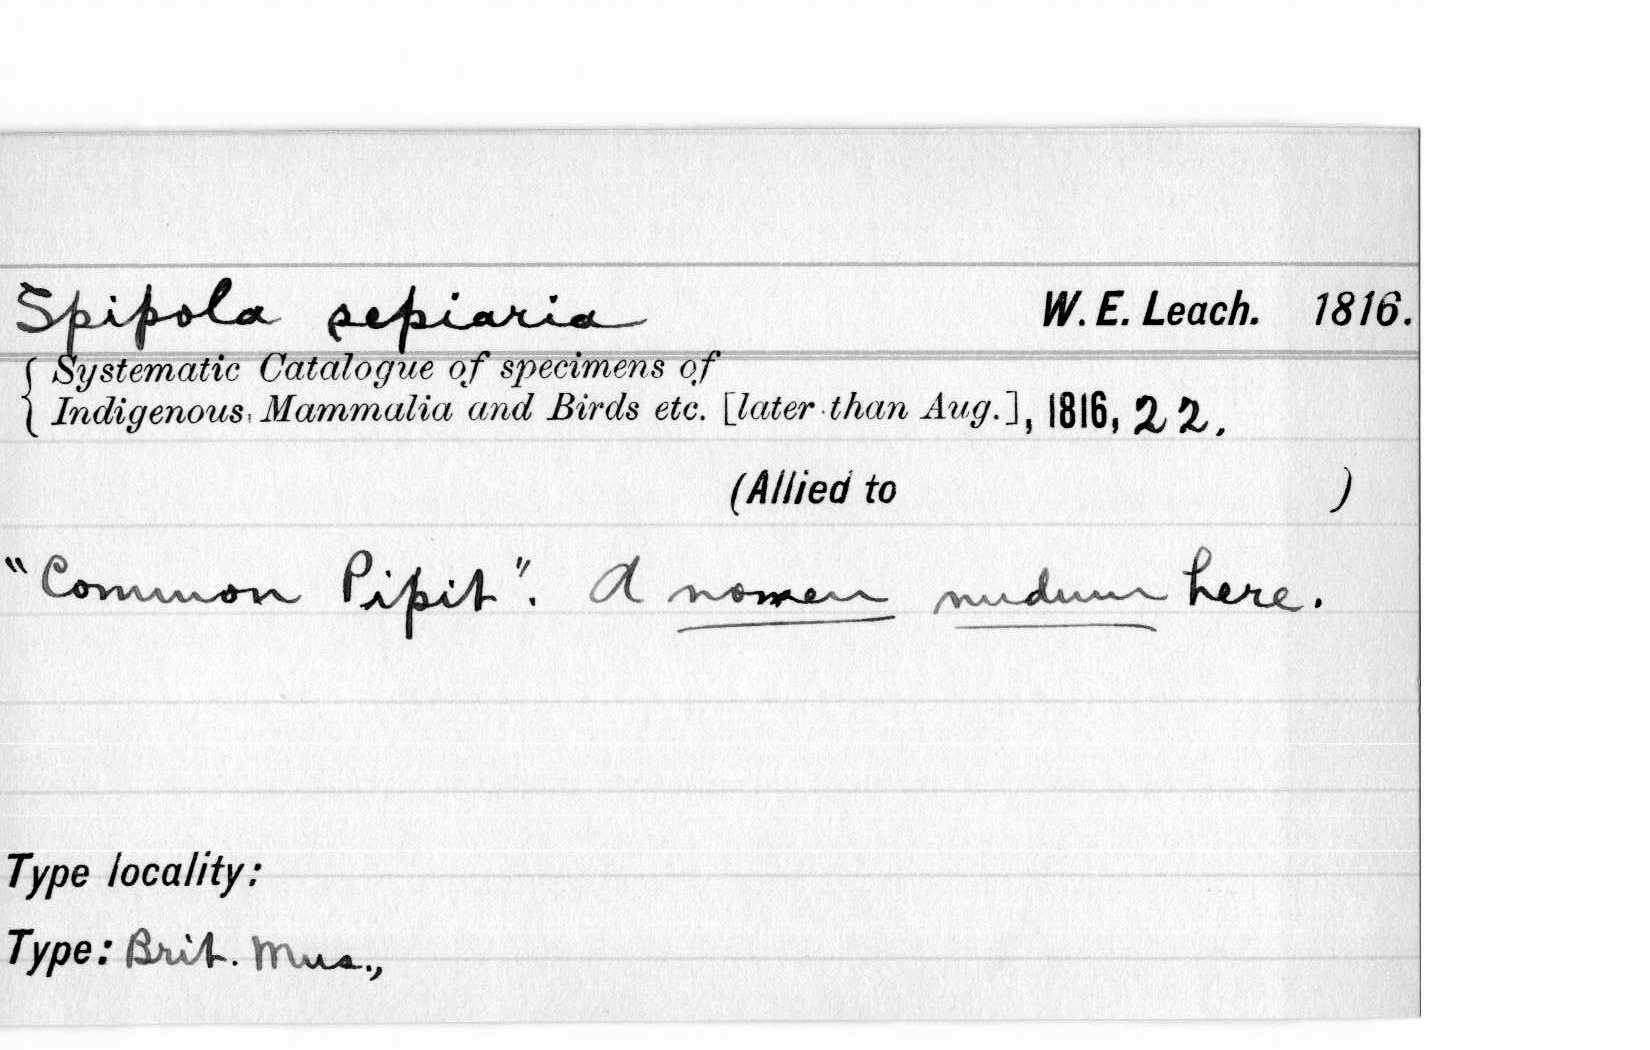 Spipola sepiaria W. E. Leach. 1816.
{ Systematic Catalogue of specimens of
Indigenous, Mammalia and Birds etc. [later than Aug.], 1816, 22.
(Allied to )
"Common Pipit". A nomen nudum here.
Type locality:
Type: Brit. Mus.,